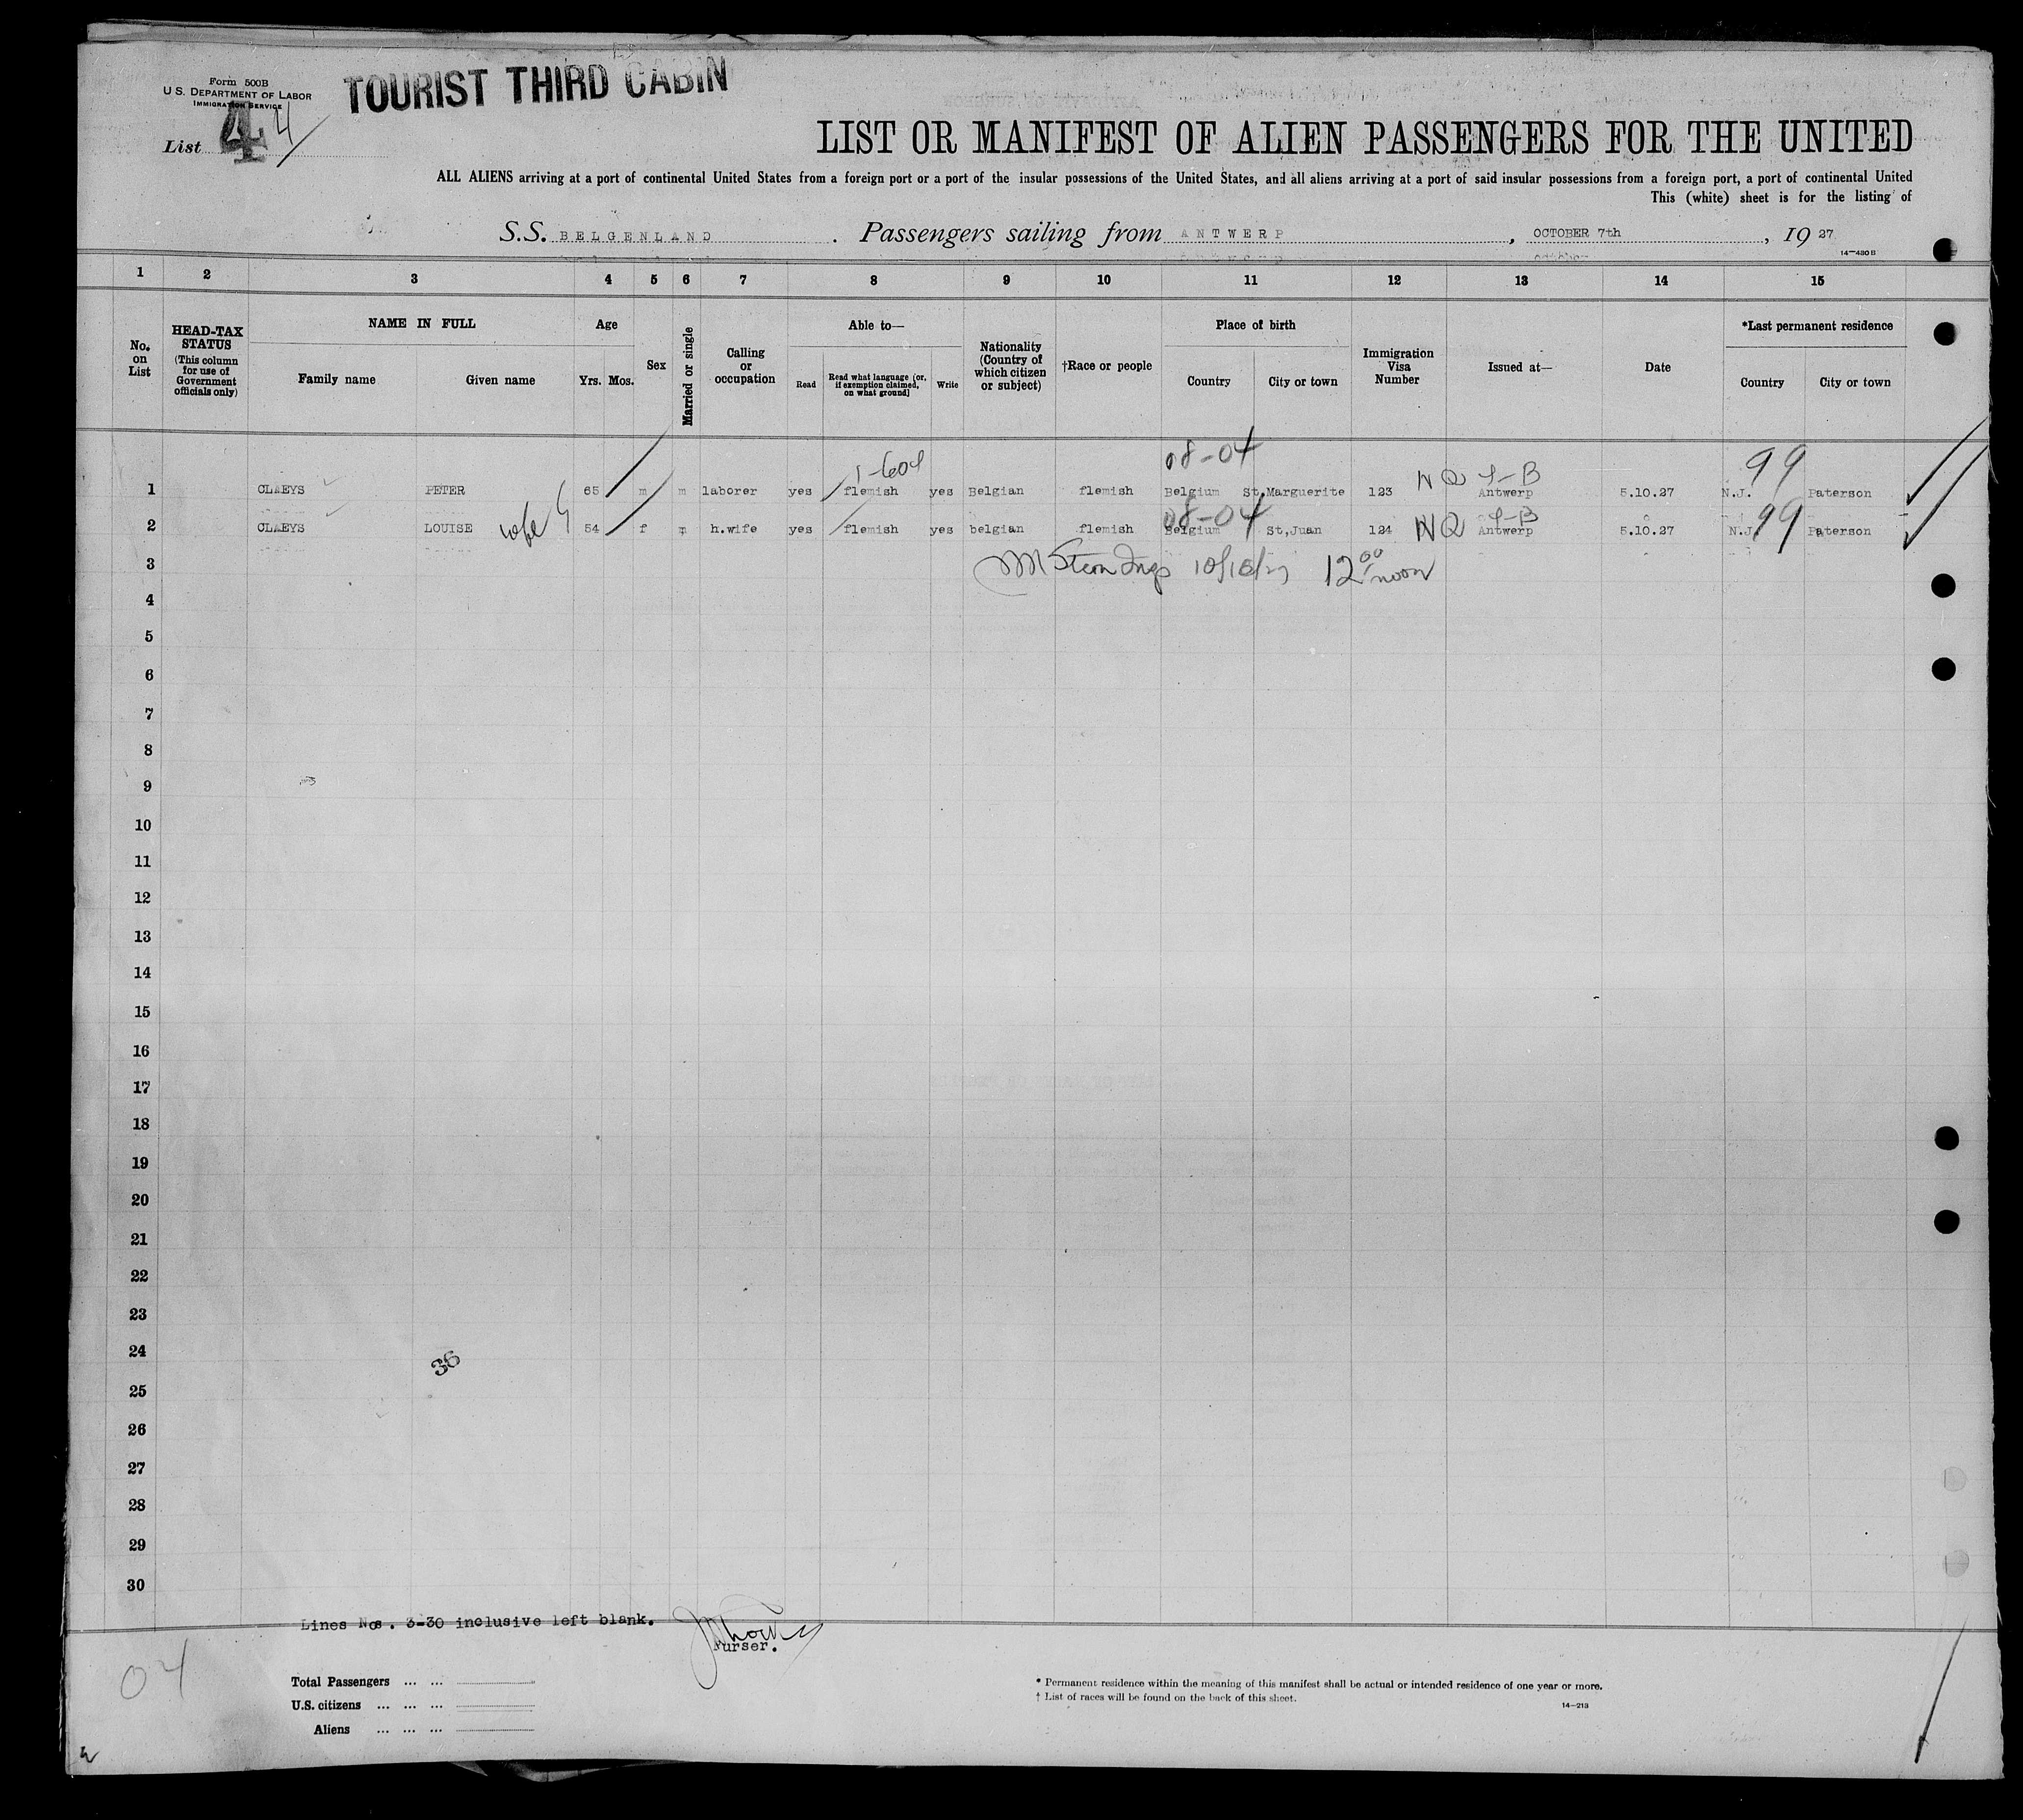 Form 500B
U. S. DEPARTMENT OF LABOR
IMMIGRATION SERVICE
TOURIST THIRD CABIN
List 4 4
LIST OR MANIFEST OF ALIEN PASSENGERS FOR THE UNITED
ALL ALIENS arriving at a port of continental United States from a foreign port or a port of the insular possessions of the United States, and all aliens arriving at a port of said insular possessions from a foreign port, a port of continental United
This (white) sheet is for the listing of
S.S. BELGENLAND . Passengers sailing from ANTWERP , OCTOBER 7th , 19 27
14—430B
1 2 3 4 5 6 7 8 9 10 11 12 13 14 15
No. on List
HEAD-TAX STATUS (This column for use of Government officials only)
NAME IN FULL
Family name Given name
Age
Yrs. Mos.
Sex
Married or single
Calling or occupation
Able to—
Read
Read what language [or, if exemption claimed, on what ground]
Write
Nationality (Country of which citizen or subject)
†Race or people
Place of birth
Country City or town
Immigration Visa Number
Issued at—
Date
*Last permanent residence
Country City or town
08-04 99
1 CLAEYS PETER 65 m m laborer yes flemish yes Belgian flemish Belgium St,Marguerite 123 NQ Antwerp 5.10.27 N.J. Paterson
08-04 99
2 CLAEYS LOUISE wife 54 f m h.wife yes flemish yes belgian flemish Belgium St,Juan 124 NQ Antwerp 5.10.27 N.J. Paterson
3 Stern 12 00 noon
4
5
6
7
8
9
10
11
12
13
14
15
16
17
18
19
20
21
22
23
24
36
25
26
27
28
29
30
Lines Nos. 3-30 inclusive left blank.
Purser.
04
Total Passengers ... ...
U.S. citizens ... ... ...
Aliens ... ... ...
* Permanent residence within the meaning of this manifest shall be actual or intended residence of one year or more.
† List of races will be found on the back of this sheet.
14—213